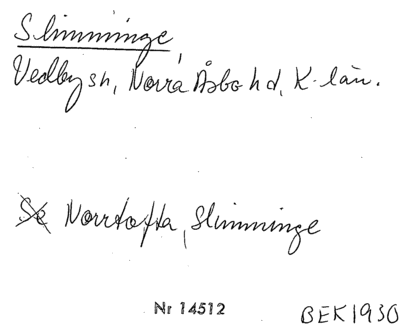 Slimminge,
Vedby sn, Norra Åsbo hd, K-län.
Se Norrtofta, Slimminge
Nr 14512
BEK1930